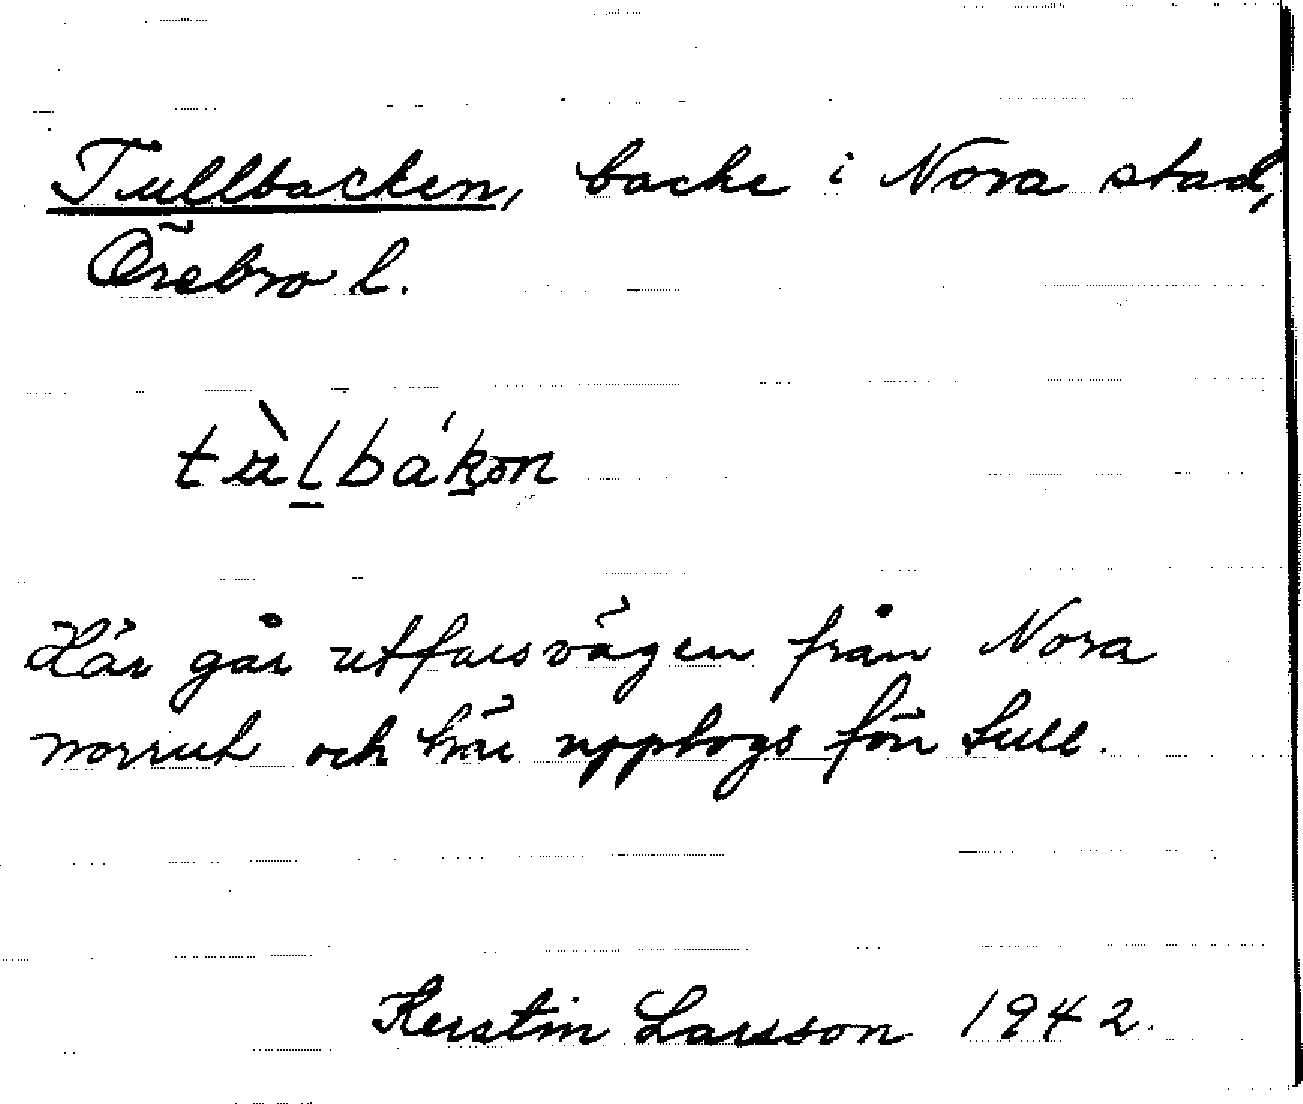 Tullbacken, backe i Nora stad,
Örebro l.
Här går utfarsvägen från Nora
norrut och här upptogs förr tull.
Kerstin Larsson 1942.